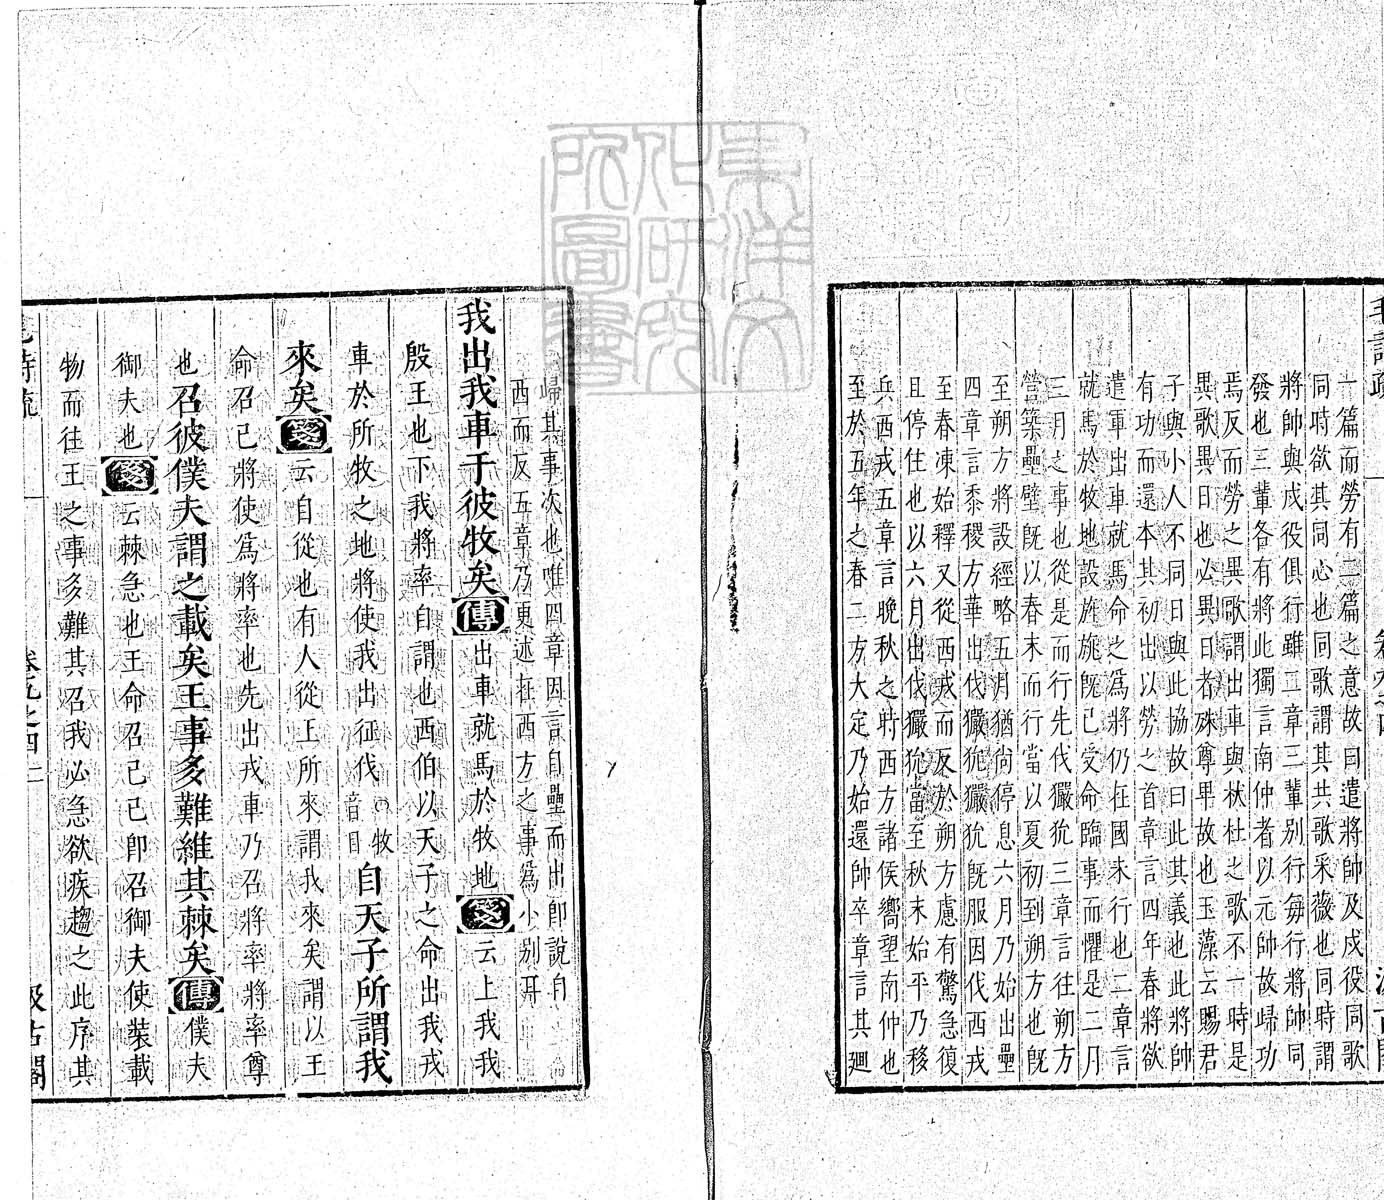 毛詩疏
一篇而勞有二篇之意故曰遣將帥及戍役同歌
同時欲其同心也同歌謂其共歌采薇也同時謂
將帥與戍役俱行雖二章三輩别行每行將帥同
發也三輩各有將此獨言南仲者以元帥故歸功
焉反而勞之異歌謂出車與杕杜之歌不一時是
異歌異日也必異日者殊尊卑故也玉藻云賜君
子與小人不同日與此協故曰此其義也此將帥
有功而還本其初出以勞之首章言四年春將欲
遣軍出車就馬命之爲將仍在國未行也二章言
就馬於牧地設旌旐旣已受命臨事而懼是二月
三月之事也從是而行先伐玁狁三章言往朔方
營築壘壁旣以春末而行當以夏初到朔方也旣
至朔方將設經略五月猶尚停息六月乃始出壘
四章言黍稷方華出伐玁狁玁狁旣服因伐西戎
至春凍始釋又從西戎而反於朔方慮有驚急復
且停住也以六月出伐玁狁當至秋末始平乃移
兵西戎五章言晚秋之時西方諸侯嚮望南仲也
至於五年之春二方大定乃始還帥卒章言其廻
歸其事次也唯四章因言自壘而出卽說自
西而反五章乃更述在西方之事爲小别耳
我出我車于彼牧矣傳出車就馬於牧地箋云上我我
殷王也下我將率自謂也西伯以天子之命出我戎
車於所牧之地將使我出征伐○牧音目自天子所謂我
來矣箋云自從也有人從王所來謂我來矣謂以王
命召己將使爲將率也先出戎車乃召將率將率尊
也召彼僕夫謂之載矣王事多難維其棘矣傳僕夫
御夫也箋云棘急也王命召己己卽召御夫使裝載
物而往王之事多難其召我必急欲疾趨之此序其
毛詩疏
卷九之四
汲古閣
東洋文
化研究
所圖書